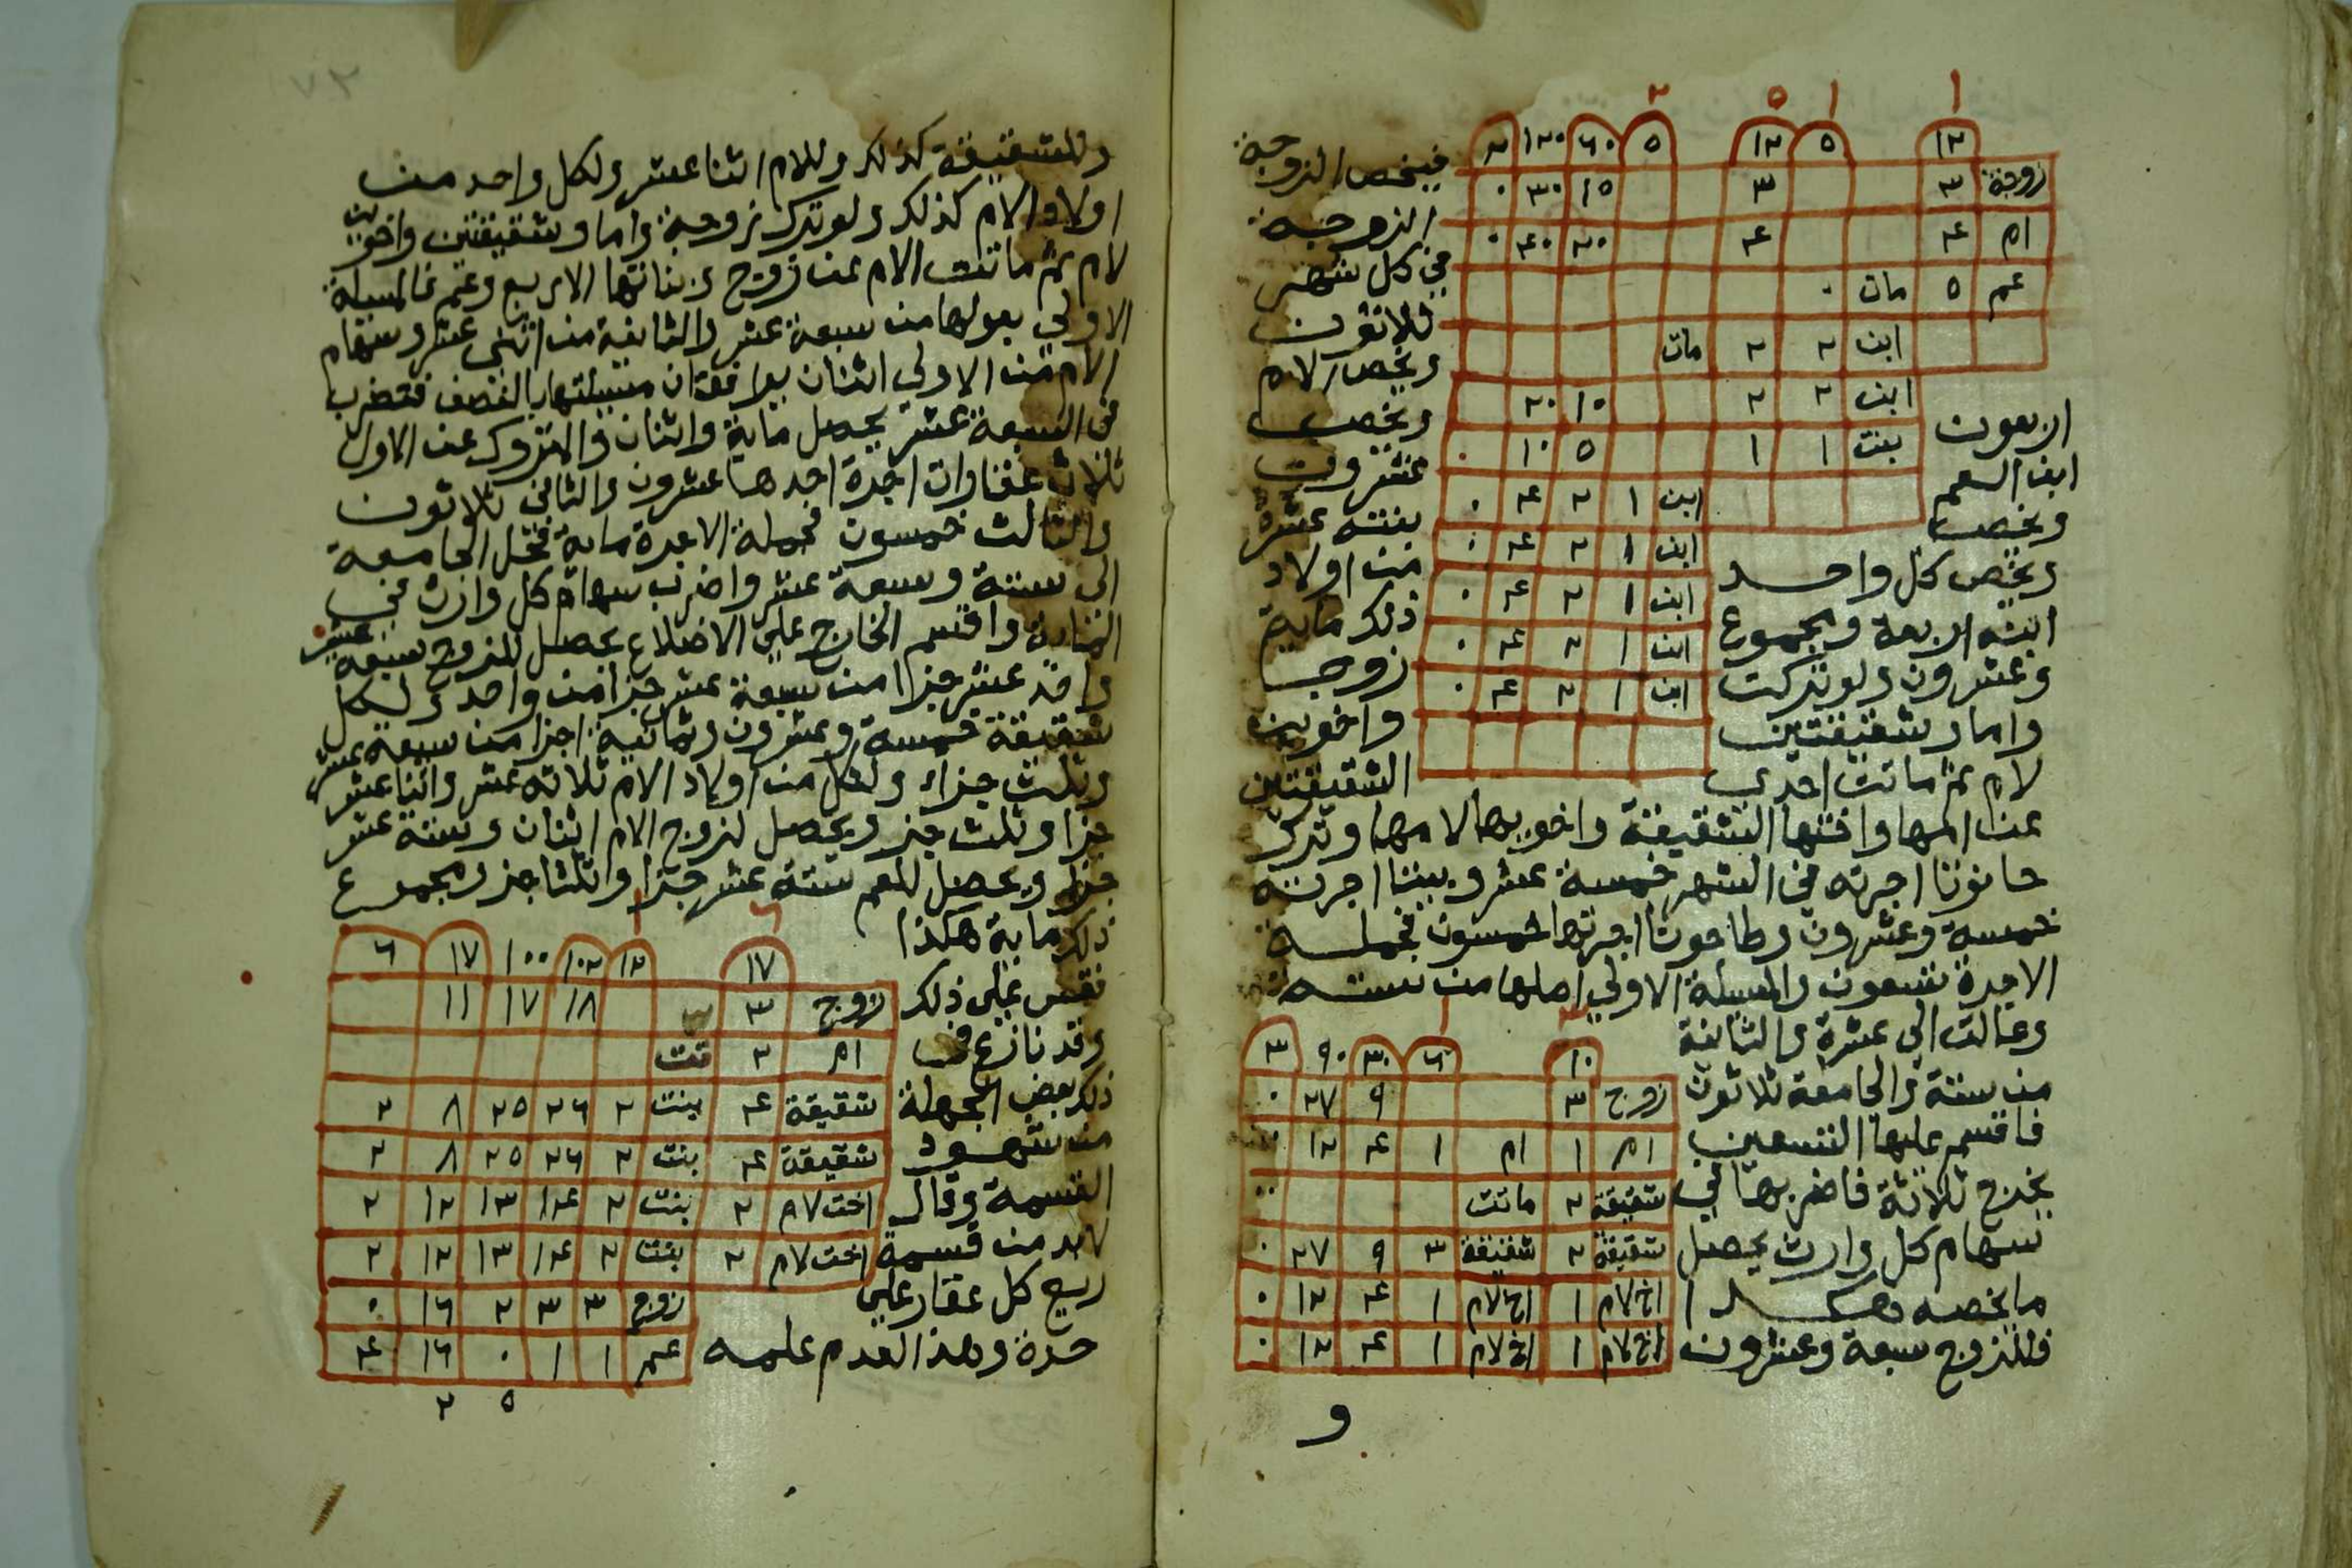 ١ ١ ٥ ٢
١٢ ٥ ١٢ ٥ ٦٠ ١٢٠ ٢
زوجة ٣ ٣ ١٥ ٣٠ ٠
ام ٤ ٤ ٢٠ ٤٠ ٠
عم ٥ مات ٠
ابن ٢ ٢ مات
ابن ٢ ٢ ١٠ ٢٠
بنت ١ ١ ٥ ١٠ ٠
ابن ١ ٢ ٤ ٠
ابن ١ ٢ ٤ ٠
ابن ١ ٢ ٤ ٠
ابن ١ ٢ ٤ ٠
ابن ١ ٢ ٤ ٠
فيخص الزوجة
الزوجة
في كل شهر
ثلاثون
ويخص الام
اربعون ويخص
ابن العم عشرون
ويخص بنته عشرة
ويخص كل واحد من اولاد
ابنه اربعة ومجموع ذلك ماية
وعشرون ولو تركت زوجا
واما وشقيقتين واخوين
لام ثم ماتت احدى الشقيقتين
عن امها واختها الشقيقة واخويها لامها وترك
حانوتا اجرته في الشهر خمسة عشر وبيتا اجرته
خمسة وعشرون وطاحونا اجرتها خمسون فجملة
الاجرة تسعون والمسيلة الاولى اصلها من ستة
وعالت الى عشرة والثانية
من ستة والجامعة ثلاثون
فاقسم عليها التسعين
يخرج ثلاثة فاضربها في
سهام كل وارث يحصل
ما يخصه هكذا
فللزوج سبعة وعشرون
١٠ ٦ ٣٠ ٩٠ ٣
زوج ٣ ٩ ٢٧ ٠
ام ١ ام ١ ٤ ١٢
شقيقة ٢ ماتت
شقيقة ٢ شقيقة ٣ ٩ ٢٧ ٠
اخ لام ١ اخ لام ١ ٤ ١٢ ٠
اخ لام ١ اخ لام ١ ٤ ١٢ ٠
و
٧٢
وللشقيقة كذلك وللام اثنا عشر ولكل واحد من
اولاد الام كذلك ولو ترك زوجة واما وشقيقتين واختين
لام ثم ماتت الام عن زوج وبناتها الاربع وعم فالمسيلة
الاولى بعولها من سبعة عشر والثانية من اثنى عشر وسهام
الام من الاولى اثنان يوافقان مسيلتها بالنصف فتضرب
في السبعة عشر يحصل ماية واثنان والمتروك عن الاول
ثلاث عقارات اجرة احدها عشرون والثاني ثلاثون
والثالث خمسون فجملة الاجرة ماية فتحل الجامعة
الى ستة وسبعة عشر واضرب سهام كل وارث في
الماية واقسم الخارج على الاضلاع يحصل للزوج سبعة عشر
واحد عشر جزا من سبعة عشر جزا من واحد ولكل
شقيقة خمسة وعشرون وثمانية اجزا من سبعة عشر
وثلث جزء ولكل من اولاد الام ثلاثة عشر واثنا عشر
جزا وثلث جزء ويحصل لزوج الام اثنان وستة عشر
جزا ويحصل للعم ستة عشر جزا وثلثا جزء ومجموع
ذلك ماية هكذا
فقس على ذلك
وقد نازع في
ذلك بعض الجهلة
من شهود
القسمة وقال
لابد من قسمة
ريع كل عقار على
حدة وهذا لعدم علمه
٦ ١
١٧ ١٢ ١٠٢ ١٠٠ ١٧ ٦
زوج ٣ ١٨ ١٧ ١١
ام ٢ تت
شقيقة ٤ بنت ٢ ٢٦ ٢٥ ٨ ٢
شقيقة ٤ بنت ٢ ٢٦ ٢٥ ٨ ٢
اخت لام ٢ بنت ٢ ١٤ ١٣ ١٢ ٢
اخت لام ٢ بنت ٢ ١٤ ١٣ ١٢ ٢
زوج ٣ ٣ ٢ ١٦ ٠
عم ١ ١ ٠ ١٦ ٤
٥ ٢